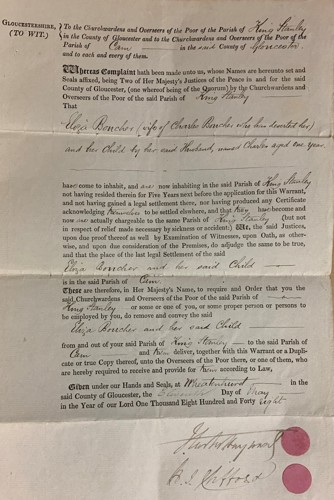 GLOUCESTERSHIRE,
(TO WIT.)
To the Churchwardens and Overseers of the Poor of the Parish of King Stanley
in the County of Gloucester and to the Churchwardens and Overseers of the Poor of the
Parish of Cam in the said County of Gloucester
and to each and every of them.
Whereas Complaint hath been made unto us, whose Names are hereunto set and
Seals affixed, being Two of Her Majesty's Justices of the Peace in and for the said
County of Gloucester, (one whereof being of the Quorum) by the Churchwardens and
Overseers of the Poor of the said Parish of King Stanley
That
Eliza Boucher (wife of Charles Boucher who has deserted her)
and her Child by her said Husband, named Charles aged one year
have come to inhabit, and are now inhabiting in the said Parish of King Stanley
not having resided therein for Five Years next before the application for this Warrant,
and not having gained a legal settlement there, nor having produced any Certificate
acknowledging themselves to be settled elsewhere, and that have become and
now are actually chargeable to the same Parish of King Stanley (but not
in respect of relief made necessary by sickness or accident): We, the said Justices,
upon due proof thereof as well by Examination of Witnesses, upon Oath, as other-
wise, and upon due consideration of the Premises, do adjudge the same to be true,
and that the place of the last legal Settlement of the said
Eliza Boucher and her said Child
is in the said Parish of Cam.
These are therefore, in Her Majesty's Name, to require and Order you the
said Churchwardens and Overseers of the Poor of the said Parish of
King Stanley or some or one of you, or some proper person or persons to
be employed by you, do remove and convey the said
Eliza Boucher and her said Child
from and out of your said Parish of King Stanley to the said Parish of
Cam and deliver, together with this Warrant or a Dupli-
cate or true Copy thereof, unto the Overseers of the Poor there, or one of them, who
are hereby required to receive and provide for them according to Law,
Given under our Hands and Seals, at in the
said County of Gloucester, the Day of May
in the Year of our Lord One Thousand Eight Hundred and Forty eight